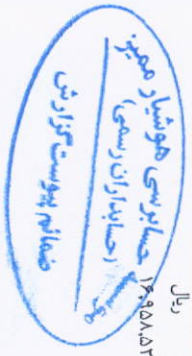 حسابرسی هوشیار ممیز
(حسابداران رسمی)
ضمائم پیوست گزارش
ریال